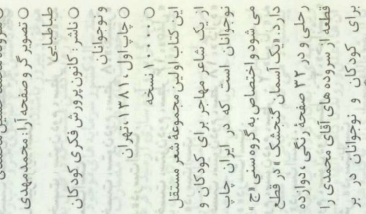 ○ تصویرگر و صفحه‌آرا: محمدمهدی
طباطبایی
○ ناشر: کانون پرورش فکری کودکان
و نوجوانان
○ چاپ اول، ۱۳۸۱، تهران
○ ۱۰۰۰۰ نسخه
این کتاب اولین مجموعه شعر مستقل
از یک شاعر مهاجر برای کودکان و
نوجوانان است که در ایران چاپ
می شود و اختصاص به گروه سنی «ج»
دارد. «یک آسمان گنجشک» در قطع
رحلی و در ۲۴ صفحه رنگی، دوازده
قطعه از سروده های آقای محمدی را
برای کودکان و نوجوانان در بر